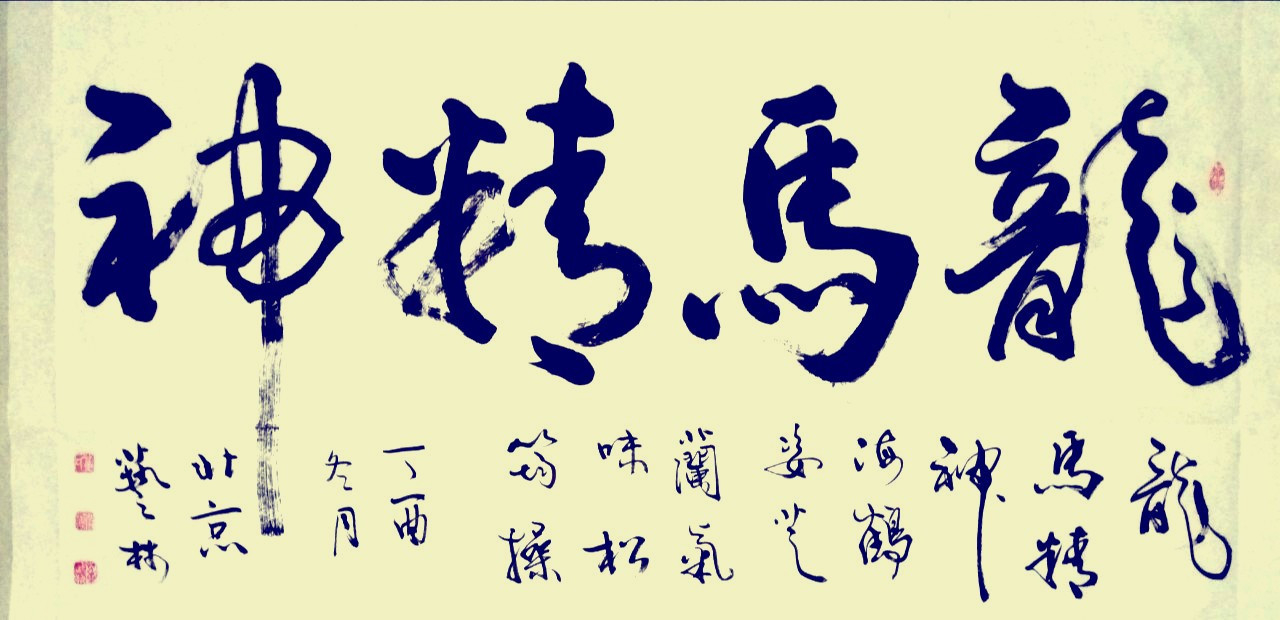 龍馬精神
龍
馬精
神
海鶴
姿芝
蘭氣
味松
筠操
丁酉
冬月
北京
藝林